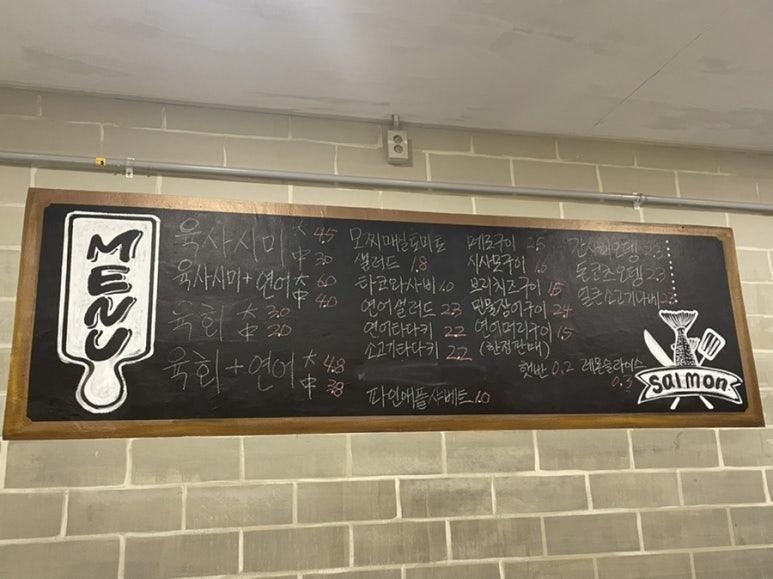 MENU
육사시미 大 4.5
中 3.0
육사시미+연어 大 6.0
中 4.0
육회 大 3.0
中 2.0
육회+연어 大 4.8
中 3.8
모찌매실토마토
샐러드 1.8
타코와사비 1.0
연어샐러드 2.3
연어타다키 2.2
소고기타다키 2.2
파인애플샤베트 1.0
메로구이 2.5
시사모구이 1.6
브리치즈구이 1.5
민물장어구이 2.4
연어머리구이 1.5
(한정판매)
햇반 0.2
레몬슬라이스
0.3
돈코츠오뎅 2.3
얼큰소고기나베 2.3
Salmon